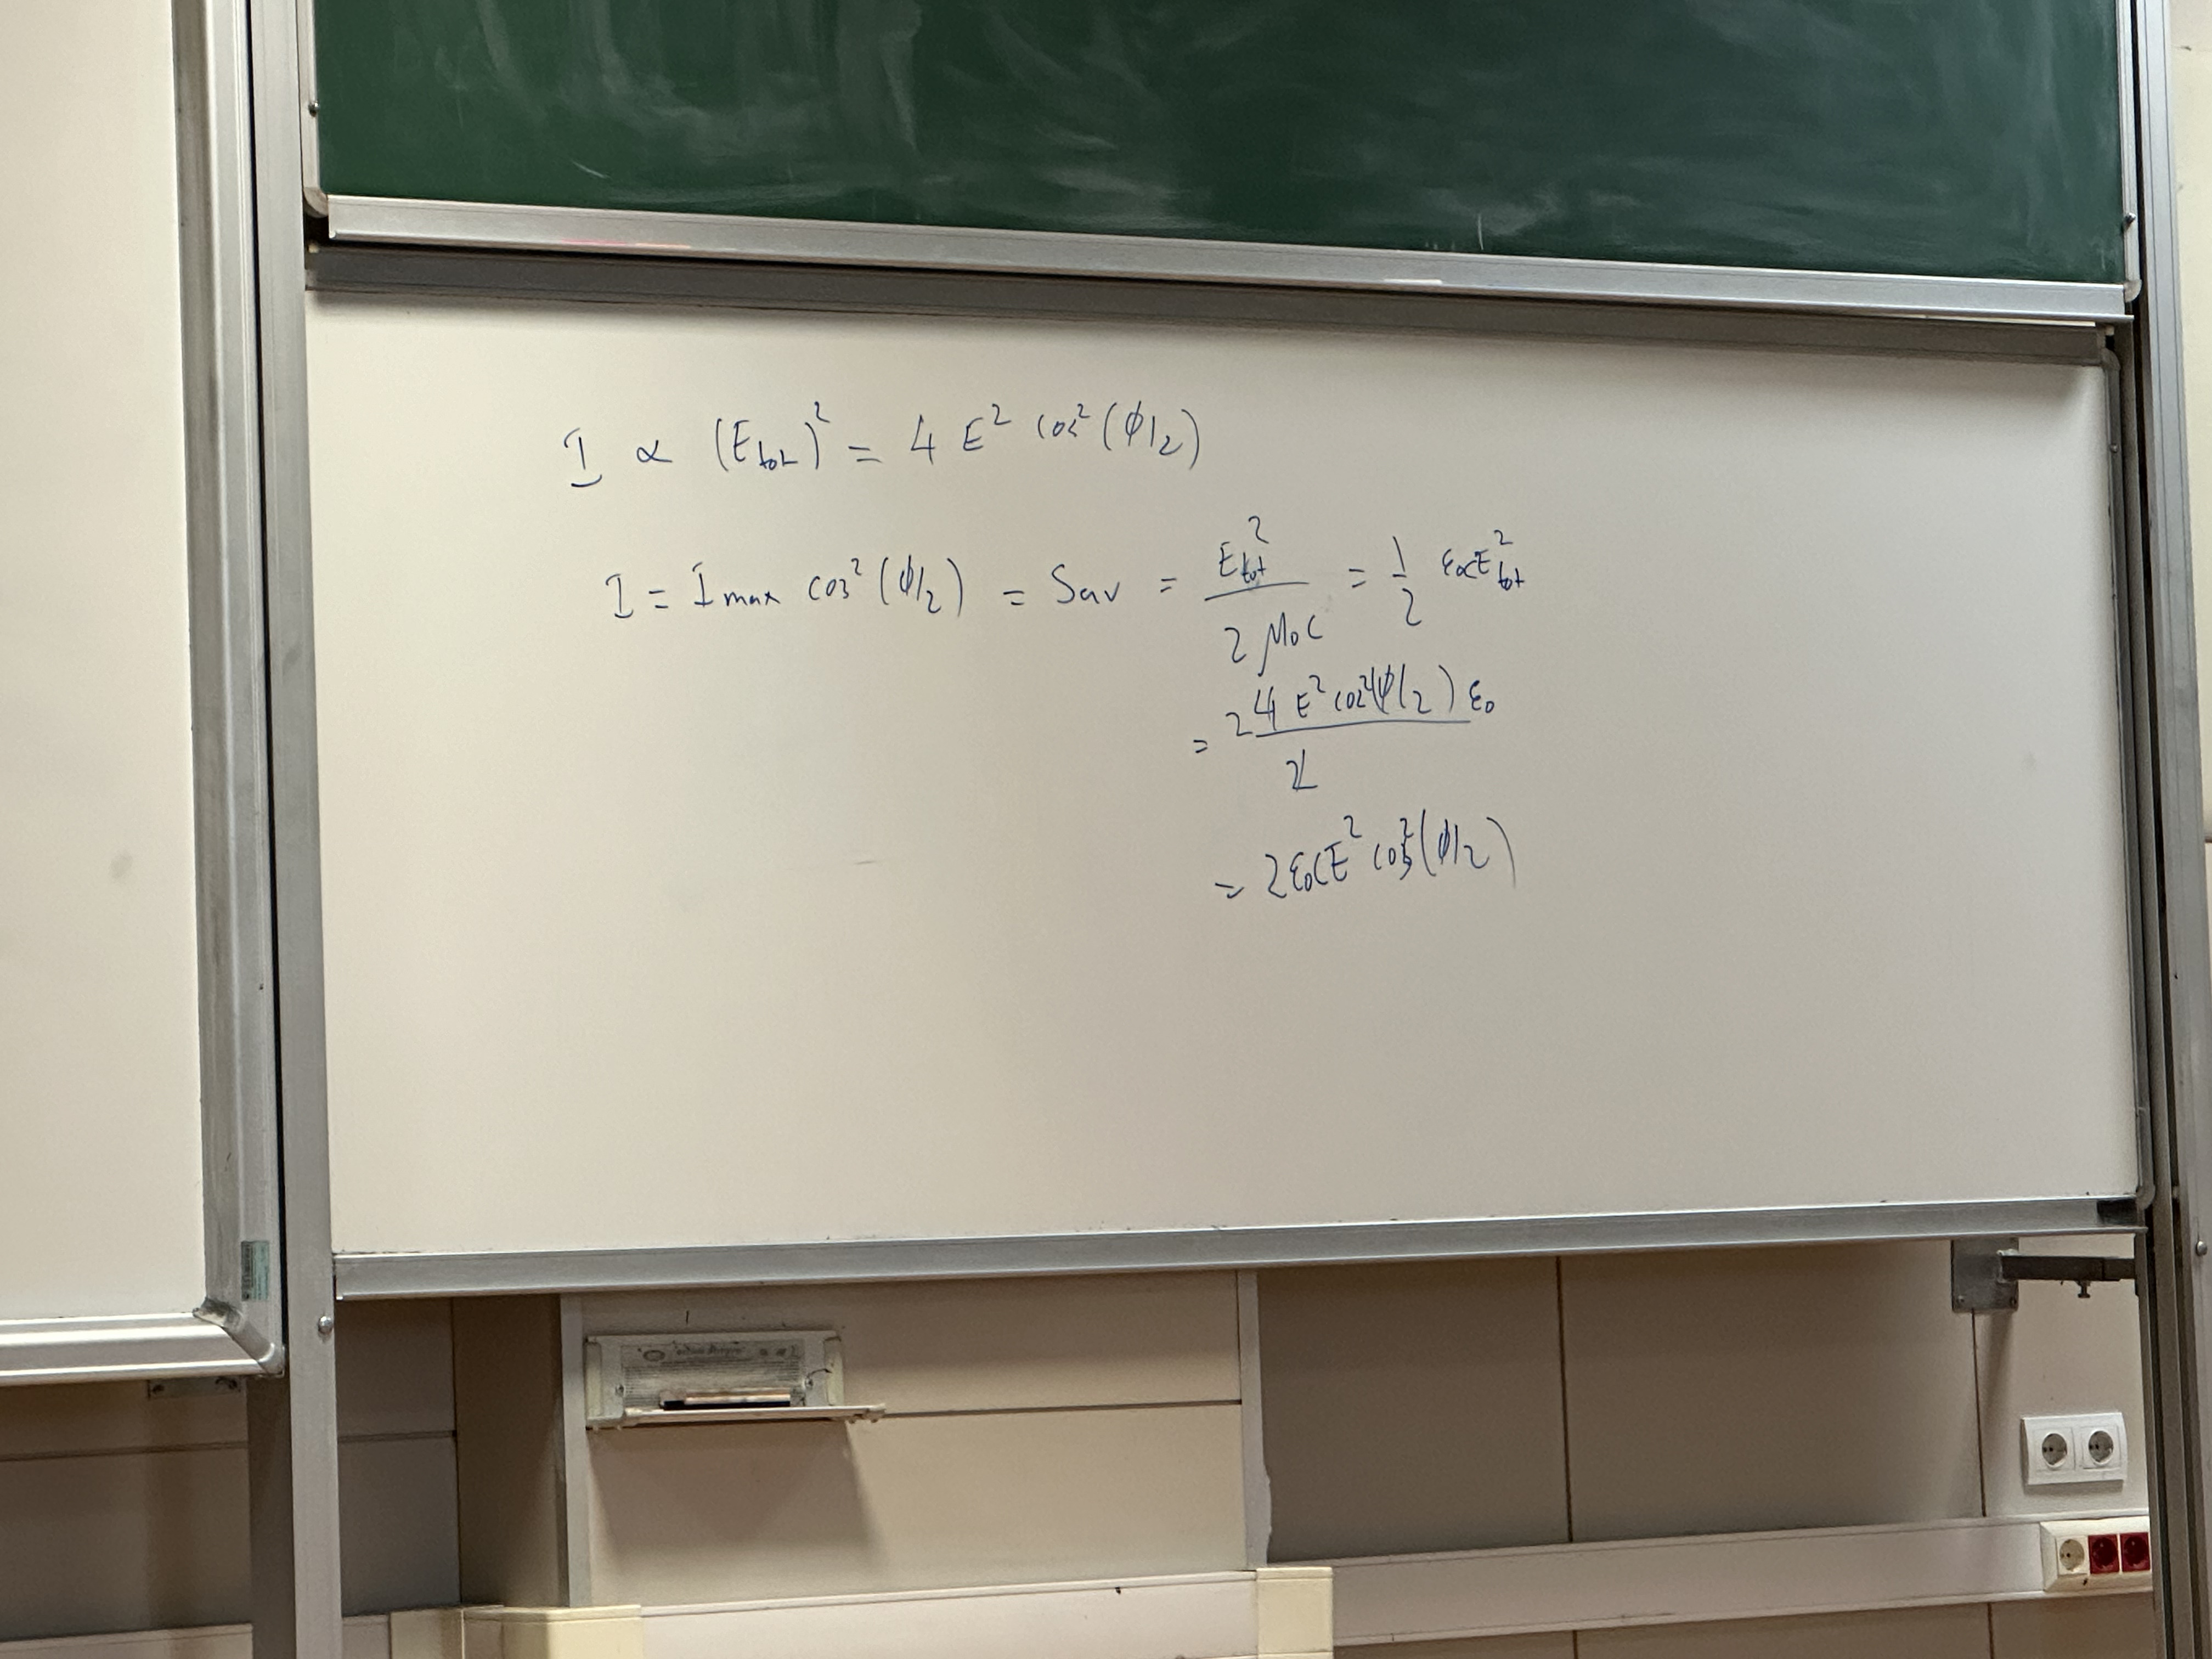 I ∝ (E_tot)² = 4 E² cos² (ϕ/2)
I = I max cos² (ϕ/2) = Sav = E_tot² / 2 μ₀c = 1/2 ε₀cE²_tot
= 2 4 E² cos²(ϕ/2) ε₀ / 2
= 2ε₀cE² cos²(ϕ/2)